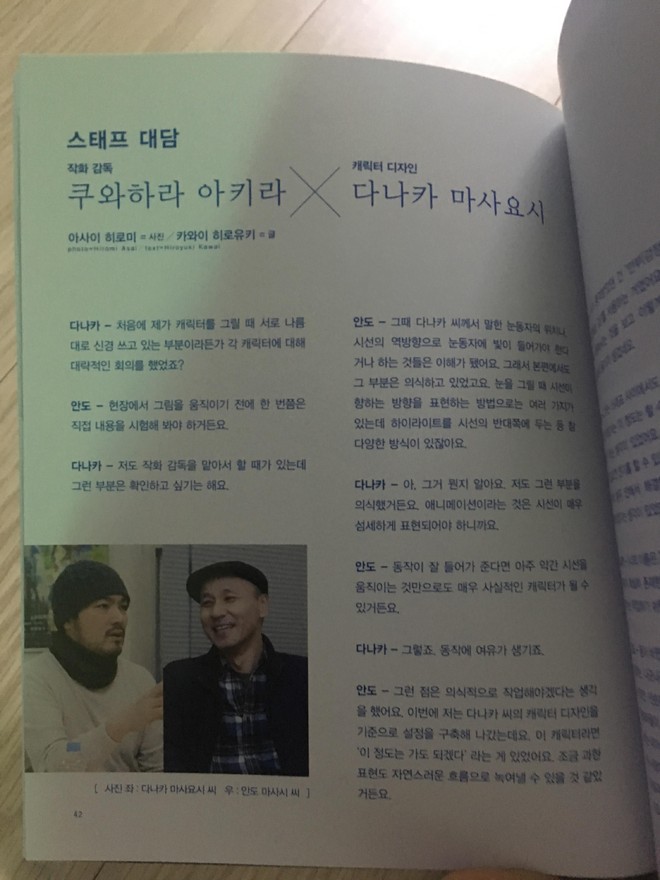 스태프 대담
작화 감독
쿠와하라 아키라
캐릭터 디자인
다나카 마사요시
아사이 히로미 = 사진 / 카와이 히로유키 = 글
photo=Hiromi Asai / text=Hiroyuki Kawai
다나카 – 처음에 제가 캐릭터를 그릴 때 서로 나름
대로 신경 쓰고 있는 부분이라든가 각 캐릭터에 대해
대략적인 회의를 했었죠?
안도 – 현장에서 그림을 움직이기 전에 한 번쯤은
직접 내용을 시험해 봐야 하거든요.
다나카 – 저도 작화 감독을 맡아서 할 때가 있는데
그런 부분은 확인하고 싶기는 해요.
[ 사진 좌 : 다나카 마사요시 씨 우 : 안도 마사시 씨 ]
42
안도 – 그때 다나카 씨께서 말한 눈동자의 위치나
시선의 역방향으로 눈동자에 빛이 들어가야 한다
거나 하는 것들은 이해가 됐어요. 그래서 본편에서도
그 부분은 의식하고 있었고요. 눈을 그릴 때 시선이
향하는 방향을 표현하는 방법으로는 여러 가지가
있는데 하이라이트를 시선의 반대쪽에 두는 등 참
다양한 방식이 있잖아요.
다나카 – 아, 그거 뭔지 알아요. 저도 그런 부분을
의식했거든요. 애니메이션이라는 것은 시선이 매우
섬세하게 표현되어야 하니까요.
안도 – 동작이 잘 들어가 준다면 아주 약간 시선을
움직이는 것만으로도 매우 사실적인 캐릭터가 될 수
있거든요.
다나카 – 그렇죠. 동작에 여유가 생기죠.
안도 – 그런 점은 의식적으로 작업해야겠다는 생각
을 했어요. 이번에 저는 다나카 씨의 캐릭터 디자인을
기준으로 설정을 구축해 나갔는데요. 이 캐릭터라면
'이 정도는 가도 되겠다' 라는 게 있었어요. 조금 과한
표현도 자연스러운 흐름으로 녹여낼 수 있을 것 같았
거든요.